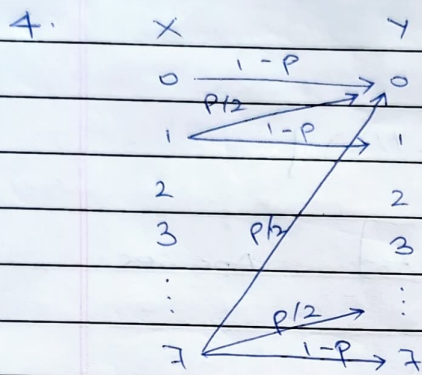 4. X Y
0 1-p 0
p/2
1 1-p 1
2 2
3 p/2 3
⋮ p/2 ⋮
7 1-p 7